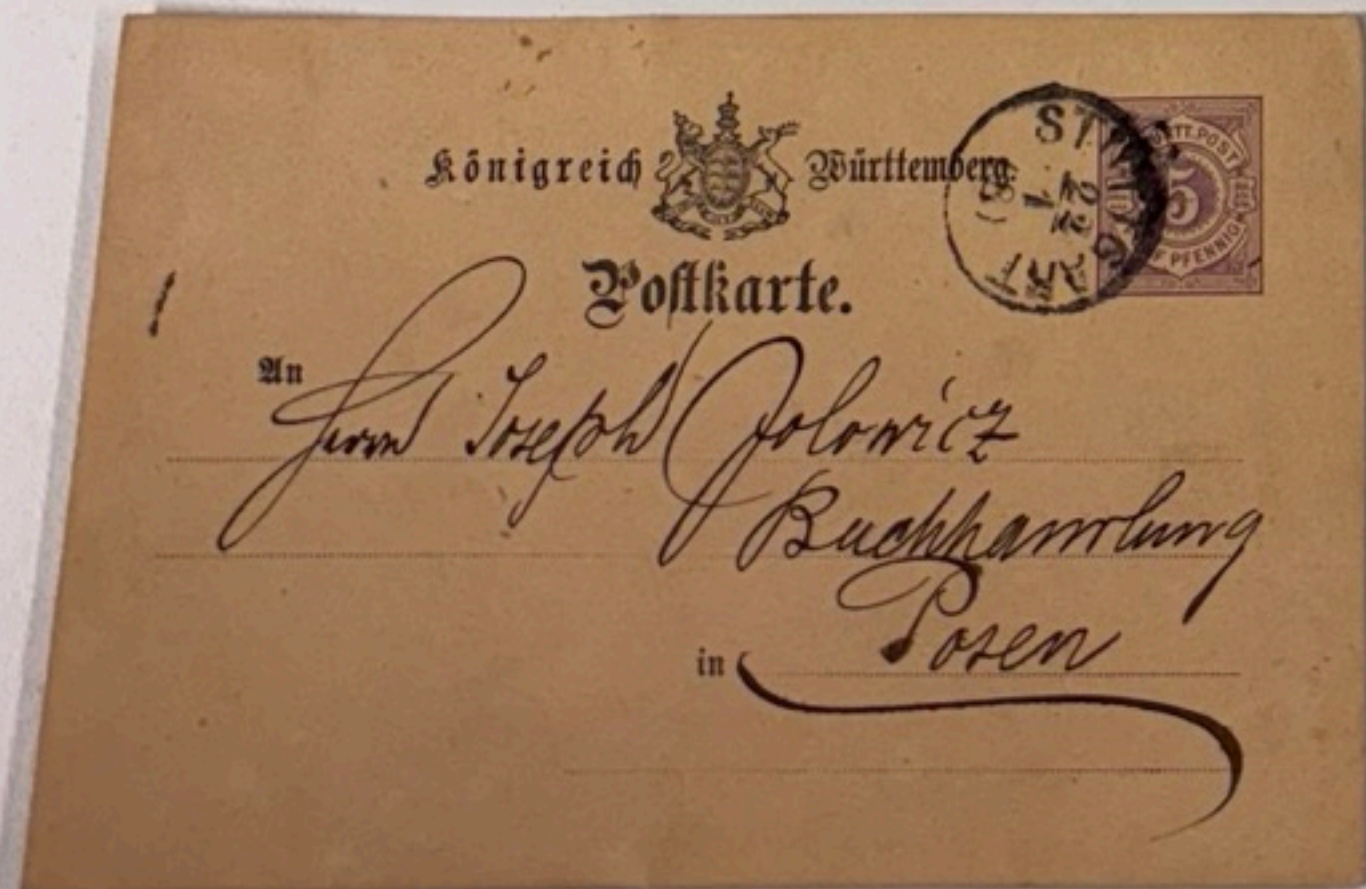 Königreich Württemberg.
STUTTGART
22
1
WÜRTT. POST
5
FÜNF PFENNIG
Postkarte.
An
Herrn Joseph Jolowicz
Buchhandlung
in Posen